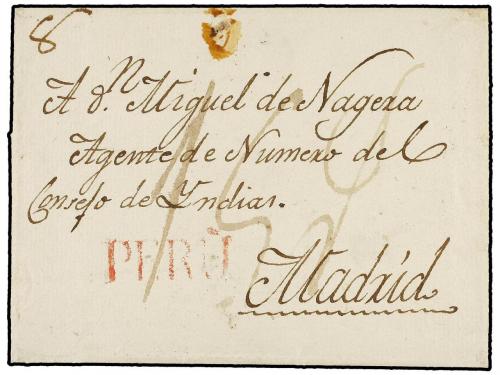 8
A d.n Miguel de Nagera
Agente de Numero del
Consejo de Yndias.
PERÙ
Madrid